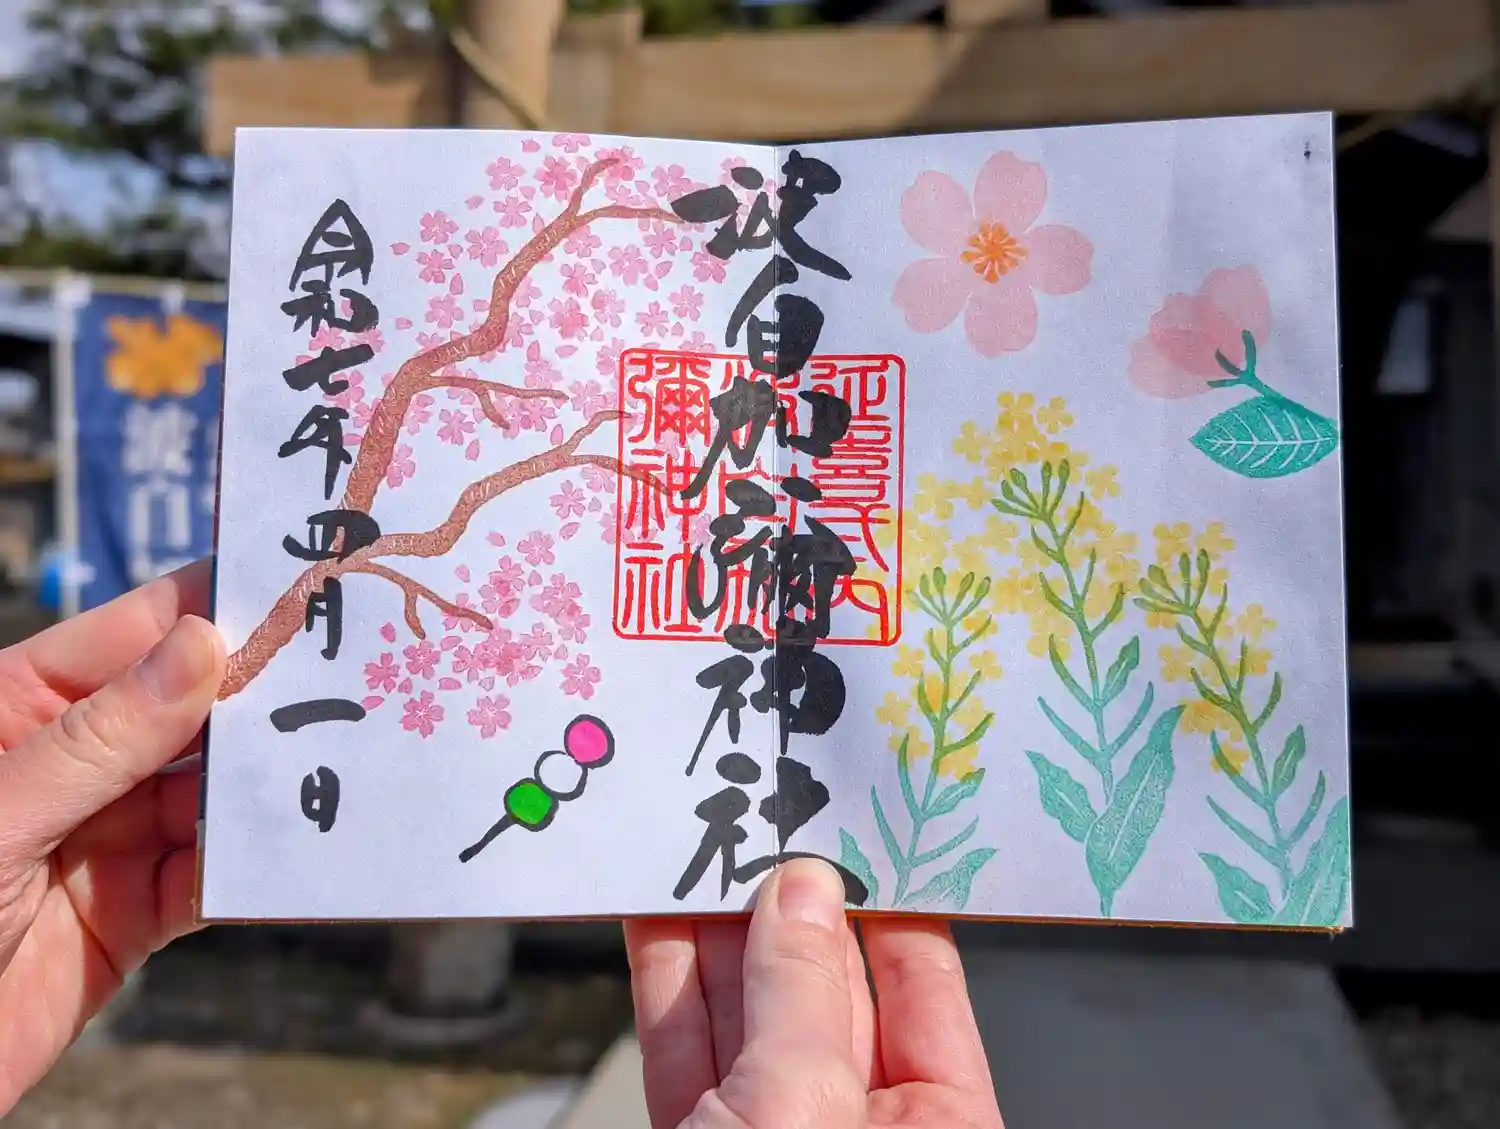 波自加彌神社
延喜式内
波自加
彌神社
令和七年四月一日
波自